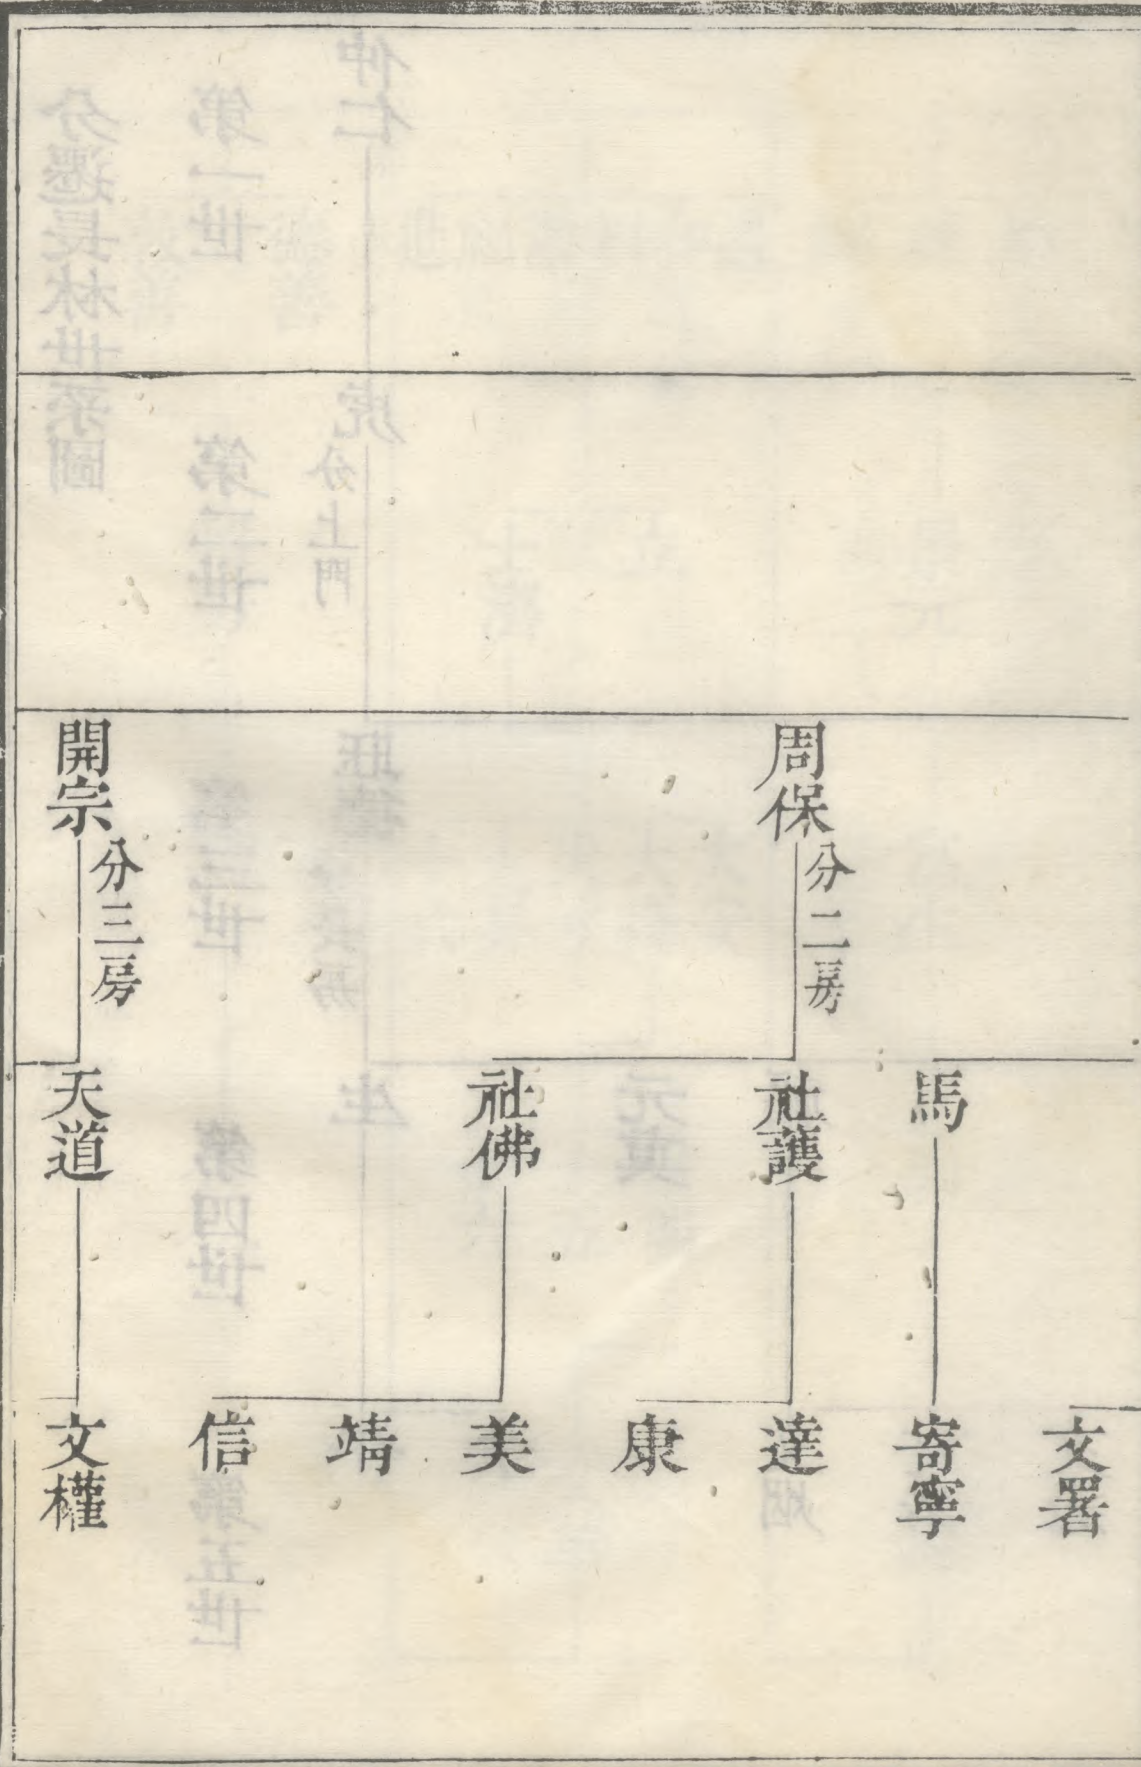 周保
分二房
開宗
分三房
馬
社護
社佛
天道
文署
寄寧
達
康
美
靖
信
文權